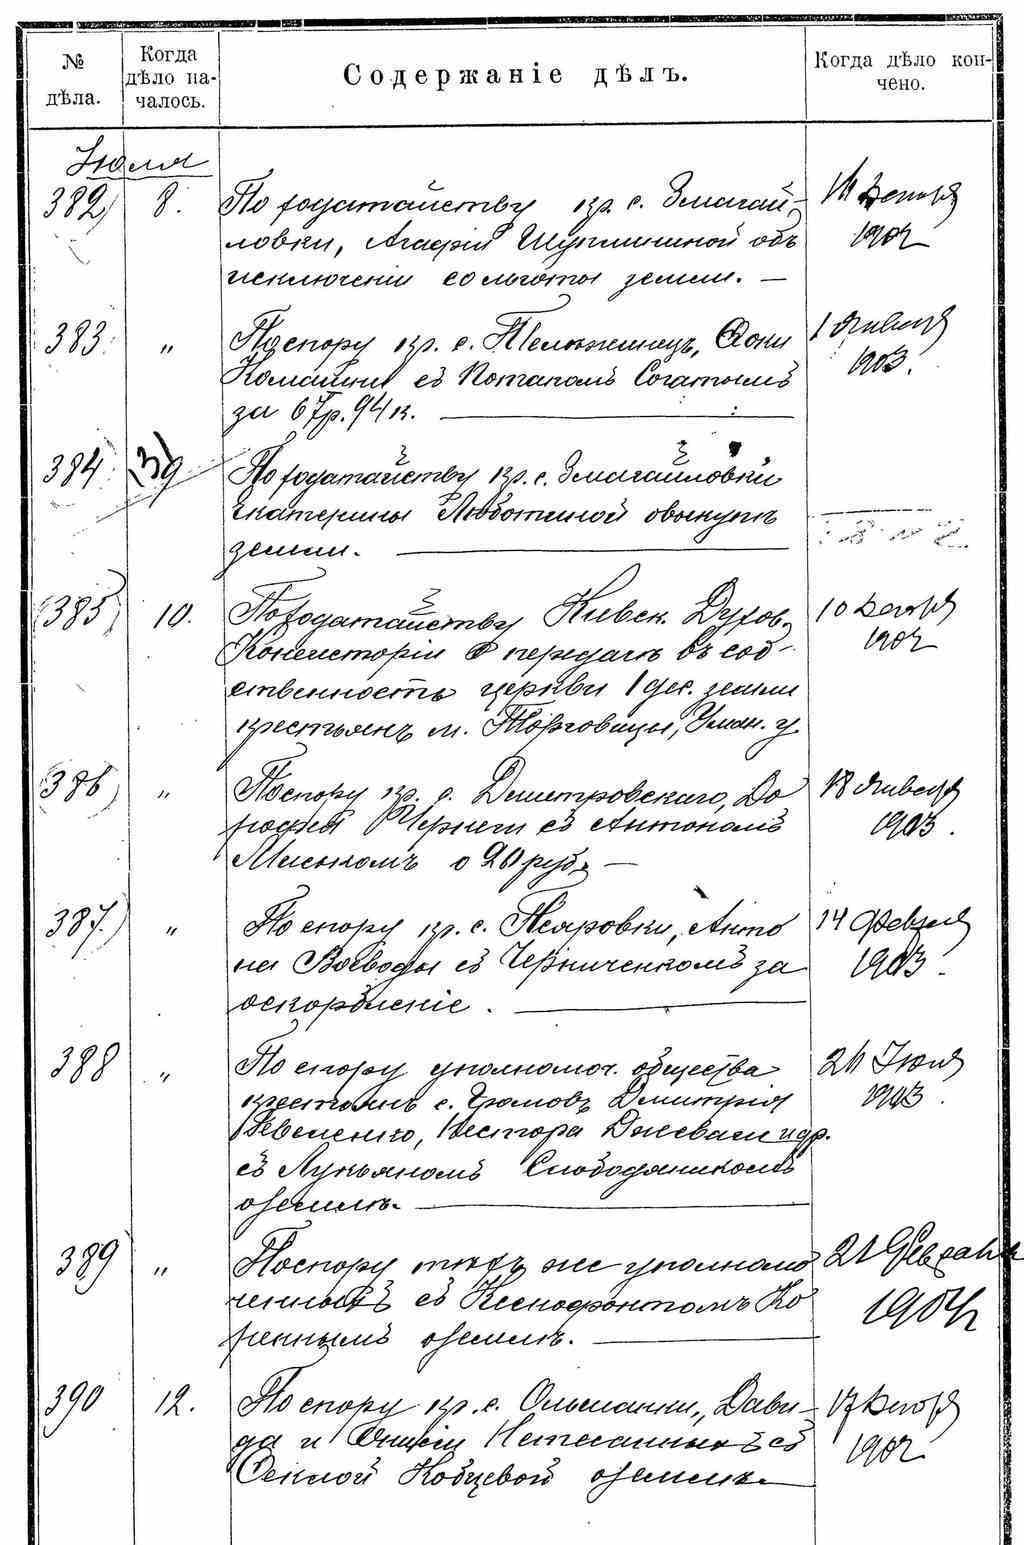 № дѣла.
Когда дѣло на-
чалось.
Содержаніе дѣлъ.
Когда дѣло кон-
чено.
Іюля
382) 8. По ходатайству кр. с. Змагай-
ловки, Агафіи об
исключеніи со льготы земли. —
14 Декабря
1902
383. „ По спору кр. с.
съ Потапомъ Богатымъ
за 67р. 94 к.
1 Января
1903.
384 9 По ходатайству кр. с. Змагайловки
Екатерины Люботиной о выкупѣ
земли.
385) 10. По ходатайству Киевск. Духов.
Консисторіи о передачѣ въ соб-
ственность церкви 1 дес. земли
крестьянъ м. Торговицы, Уман. у.
10 Декабря
1902
386) „ По спору кр. с. Дмитровскаго, До
рофея Чернеги съ Антономъ
о 20 руб. —
18 Января
1903.
387.) „ По спору кр. с. Псяровки, Анто
на Воеводы съ Черниченкомъ за
оскорбленіе.
14 Февраля
1903.
388 „ По спору уполномоч. общества
крестьянъ с. Громовъ Дмитрія
Евсеенко, Нестора и др.
съ Лукьяномъ Слободяникомъ
о землѣ.
24 Іюля
1903.
389) „ По спору тѣхъ же уполномо
ченныхъ съ Ксенофонтомъ Ко
реннымъ о землѣ.
21 Февраля
1904
390 12. По спору кр. с. Ольшанки, Дави-
да и съ
Феклой Кобцевой о землѣ
17 Декабря
1902